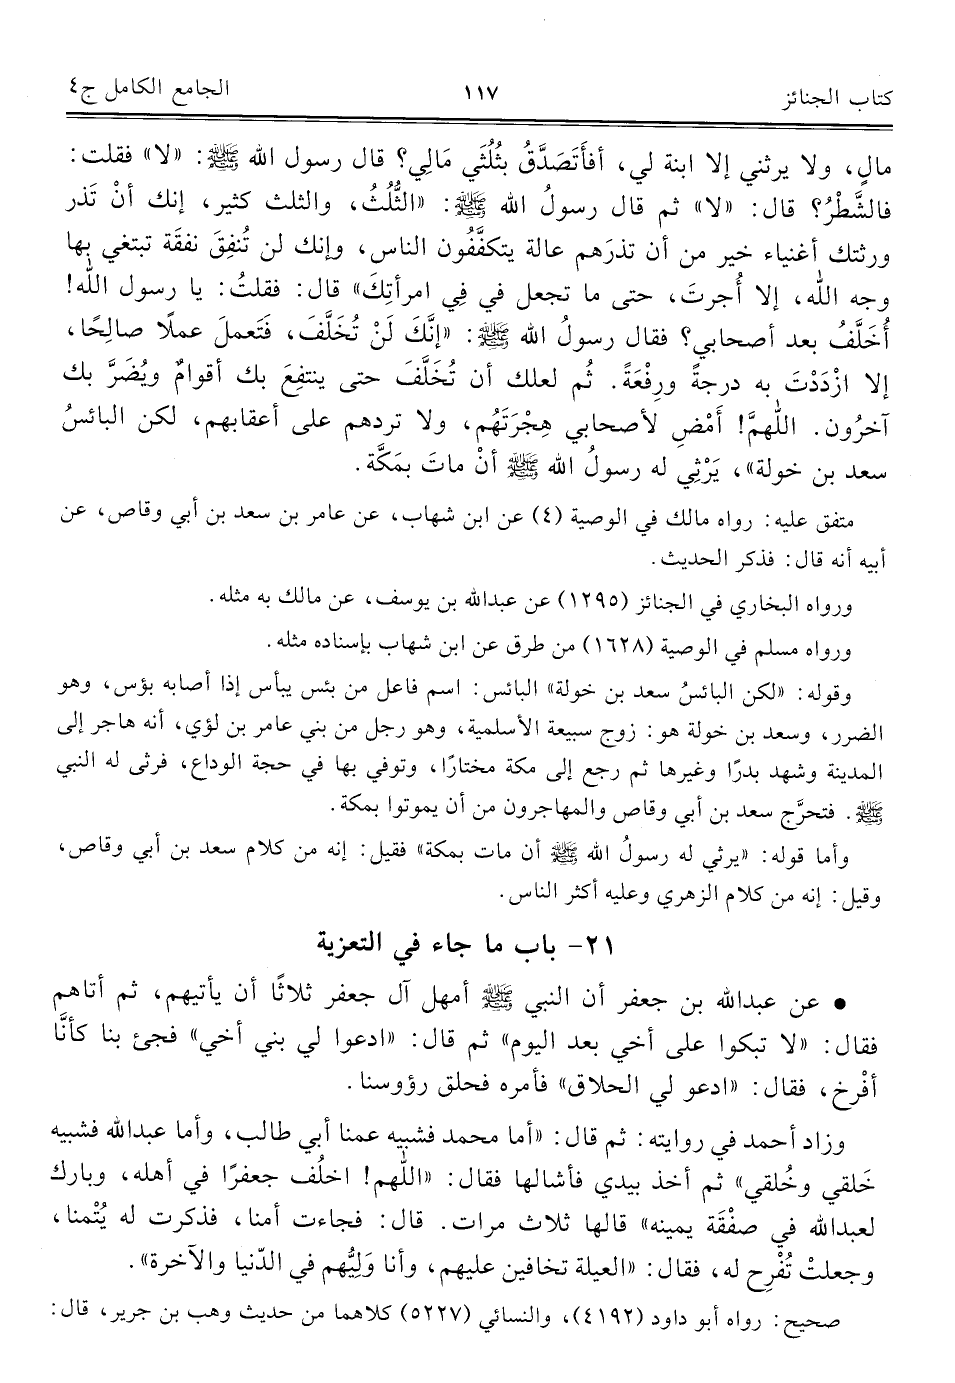 كتاب الجنائز ١١٧ الجامع الكامل ج٤
مالٍ، ولا يرثني إلا ابنة لي، أفأَتَصَدَّقُ بثُلُثَي مَالِي؟ قال رسول الله ﷺ: «لا» فقلت:
فالشَّطْرُ؟ قال: «لا» ثم قال رسولُ الله ﷺ: «الثُّلُثُ، والثلث كثير، إنك أنْ تَذر
ورثتك أغنياء خير من أن تذرَهم عالة يتكفَّفُون الناس، وإنك لن تُنفِقَ نفقَة تبتغي بها
وجه الله، إلا أُجرتَ، حتى ما تجعل في فِي امرأتِكَ» قال: فقلتُ: يا رسول الله!
أُخَلَّفُ بعد أصحابي؟ فقال رسولُ الله ﷺ: «إنَّكَ لَنْ تُخَلَّفَ، فَتَعملَ عملًا صالِحًا،
إلا ازْدَدْتَ به درجةً ورِفْعَةً. ثُم لعلك أن تُخَلَّفَ حتى ينتفِعَ بك أقوامٌ ويُضَرَّ بك
آخرُون. اللّهمَّ! أَمْضِ لأصحابي هِجْرَتَهُم، ولا تردهم على أعقابهم، لكن البائسُ
سعد بن خولة»، يَرْثِي له رسولُ الله ﷺ أنْ ماتَ بمَكَّة.
متفق عليه: رواه مالك في الوصية (٤) عن ابن شهاب، عن عامر بن سعد بن أبي وقاص، عن
أبيه أنه قال: فذكر الحديث.
ورواه البخاري في الجنائز (١٢٩٥) عن عبدالله بن يوسف، عن مالك به مثله.
ورواه مسلم في الوصية (١٦٢٨) من طرق عن ابن شهاب بإسناده مثله.
وقوله: «لكن البائسُ سعد بن خولة» البائس: اسم فاعل من بئس يبأس إذا أصابه بؤس، وهو
الضرر، وسعد بن خولة هو: زوج سبيعة الأسلمية، وهو رجل من بني عامر بن لؤي، أنه هاجر إلى
المدينة وشهد بدرًا وغيرها ثم رجع إلى مكة مختارًا، وتوفي بها في حجة الوداع، فرثى له النبي
ﷺ. فتحرَّج سعد بن أبي وقاص والمهاجرون من أن يموتوا بمكة.
وأما قوله: «يرثي له رسولُ الله ﷺ أن مات بمكة» فقيل: إنه من كلام سعد بن أبي وقاص،
وقيل: إنه من كلام الزهري وعليه أكثر الناس.
٢١- باب ما جاء في التعزية
• عن عبدالله بن جعفر أن النبي ﷺ أمهل آل جعفر ثلاثًا أن يأتيهم، ثم أتاهم
فقال: «لا تبكوا على أخي بعد اليوم» ثم قال: «ادعوا لي بني أخي» فجئ بنا كأنَّا
أفْرخ، فقال: «ادعو لي الحلاق» فأمره فحلق رؤوسنا.
وزاد أحمد في روايته: ثم قال: «أما محمد فشبيه عمنا أبي طالب، وأما عبدالله فشبيه
خَلقي وخُلقي» ثم أخذ بيدي فأشالها فقال: «اللّهم! اخلُف جعفرًا في أهله، وبارك
لعبدالله في صفْقَة يمينه» قالها ثلاث مرات. قال: فجاءت أمنا، فذكرت له يُتْمنا،
وجعلتْ تُفْرِح له، فقال: «العيلة تخافين عليهم، وأنا وَلِيُّهم في الدّنيا والآخرة».
صحيح: رواه أبو داود (٤١٩٢)، والنسائي (٥٢٢٧) كلاهما من حديث وهب بن جرير، قال: